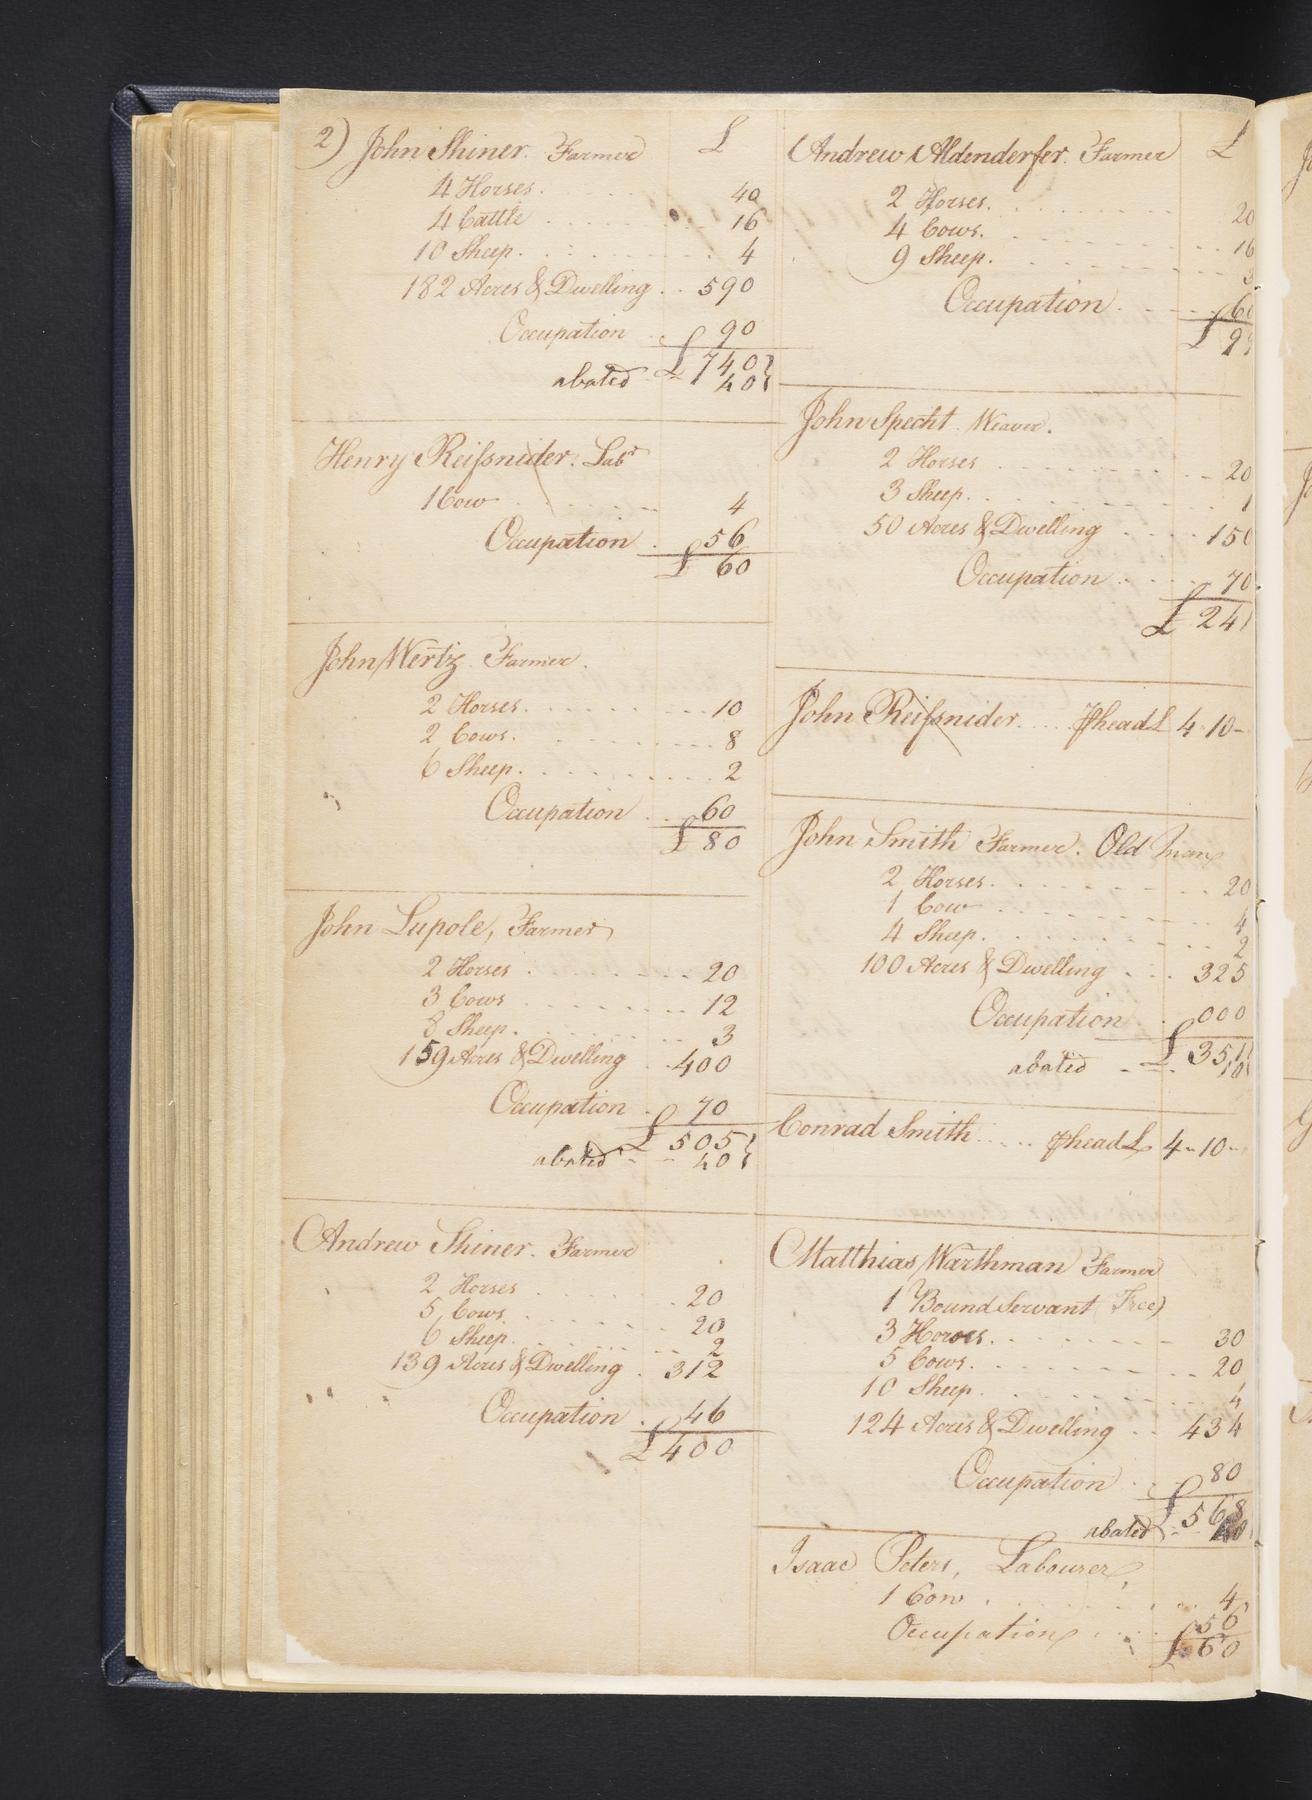 2) John Shiner. Farmer £
4 Horses. 40
4 Cattle 16
10 Sheep. 4
182 Acres & Dwelling 590
Occupation 90
£ 740
abated 40
Henry Reifsnider. Labr
1 Cow 4
Occupation 56
£ 60
John Wertz Farmer.
2 Horses. 10
2 Cows. 8
6 Sheep. 2
Occupation 60
£ 80
John Lupole, Farmer
2 Horses 20
3 Cows 12
8 Sheep. 3
159 Acres & Dwelling 400
Occupation 70
£ 505
abated 40
Andrew Shiner. Farmer
2 Horses 20
5 Cows 20
6 Sheep. 2
139 Acres & Dwelling 312
Occupation 46
£ 400
Andrew Aldenderfer. Farmer £
2 Horses. 20
4 Cows. 16
9 Sheep. 3
Occupation
£
John Specht. Weaver.
2 Horses 20
3 Sheep. 1
50 Acres & Dwelling 150
Occupation 70
£ 241
John Reifsnider head £ 4-10-
John Smith Farmer. Old Man
2 Horses. 20
1 Cow 4
4 Sheep. 2
100 Acres & Dwelling 325
Occupation 000
£ 351
abated
Conrad Smith head £ 4-10-
Matthias Warthman Farmer
1 Bound Servant (Free)
3 Horses. 30
5 Cows. 20
10 Sheep. 4
124 Acres & Dwelling 434
Occupation 80
£ 568
abated
Isaac Peters, Labourer
1 Cow 4
Occupation 56
£ 60